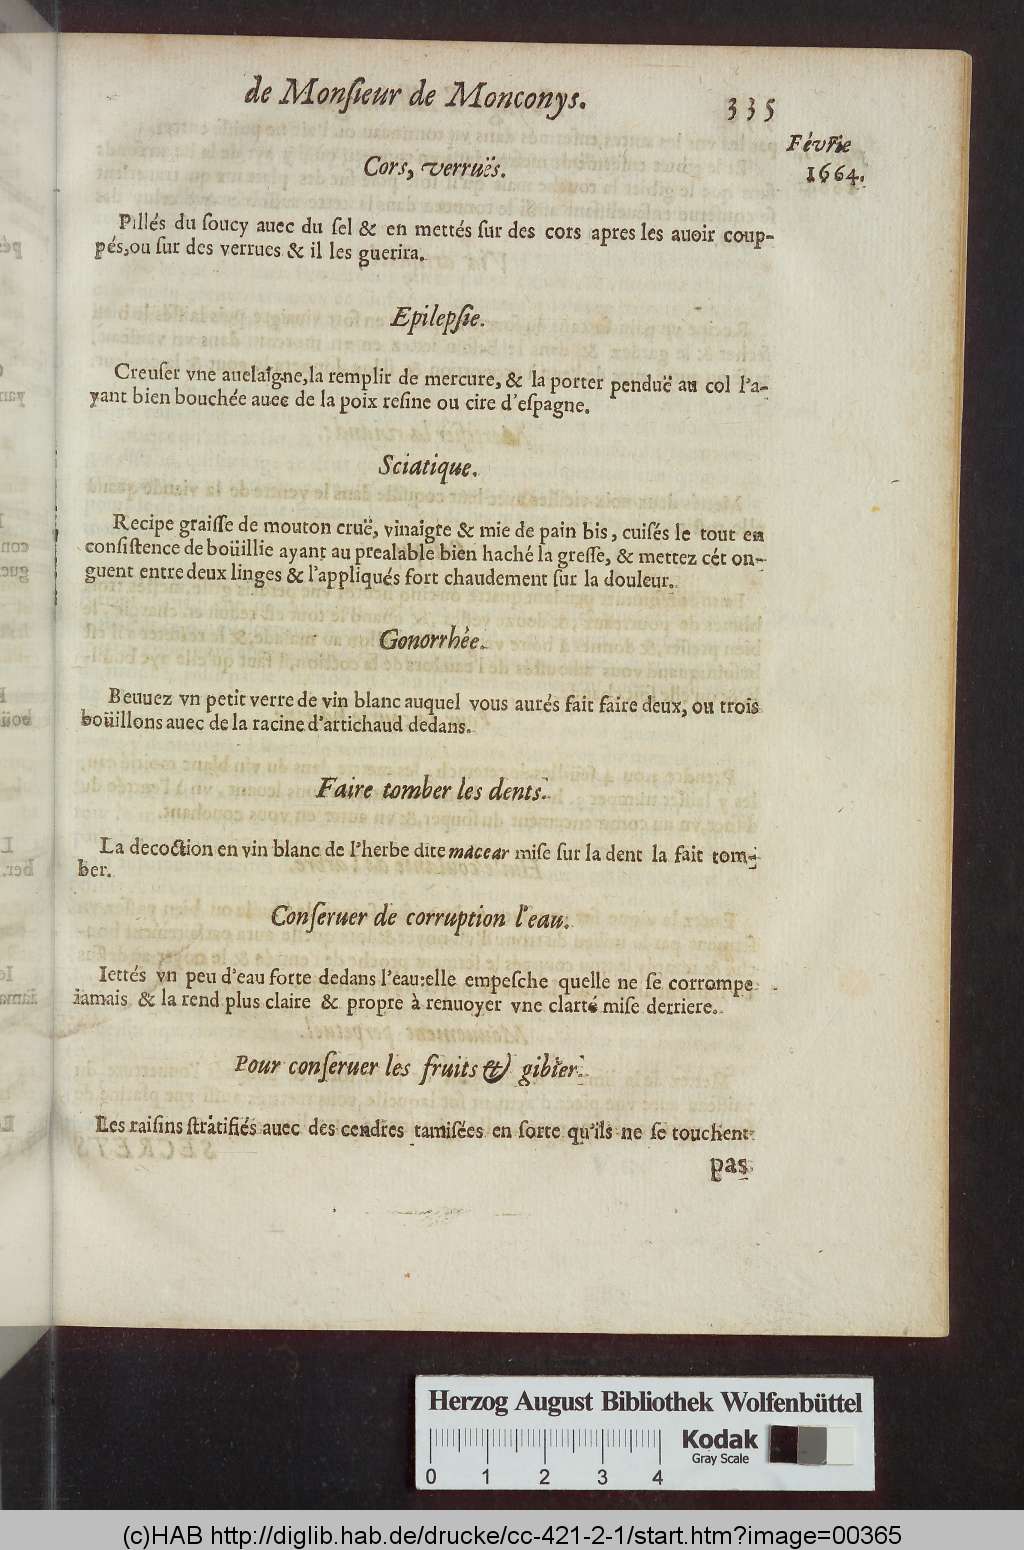 de Monſieur de Monconys. 335
Févrie
1664.
Cors, verruës.
Pillés du ſoucy auec du ſel & en mettés ſur des cors apres les auoir coup-
pés, ou ſur des verrues & il les guerira.
Epilepſie.
Creuſer vne auelaigne, la remplir de mercure, & la porter penduë au col l'a-
yant bien bouchée auec de la poix reſine ou cire d'eſpagne.
Sciatique.
Recipe graiſſe de mouton cruë, vinaigre & mie de pain bis, cuiſés le tout en
conſiſtence de boüillie ayant au prealable bien haché la greſſe, & mettez cét on-
guent entre deux linges & l'appliqués fort chaudement ſur la douleur.
Gonorrhée.
Beuuez vn petit verre de vin blanc auquel vous aurés fait faire deux, ou trois
boüillons auec de la racine d'artichaud dedans.
Faire tomber les dents.
La decoction en vin blanc de l'herbe dite macear miſe ſur la dent la fait tom-
ber.
Conſeruer de corruption l'eau.
Iettés vn peu d'eau forte dedans l'eau: elle empeſche quelle ne ſe corrompe
iamais & la rend plus claire & propre à renuoyer vne clarté miſe derriere.
Pour conſeruer les fruits & gibier.
Les raiſins ſtratifiés auec des cendres tamiſées en ſorte qu'ils ne ſe touchent
pas
Herzog August Bibliothek Wolfenbüttel
Kodak
Gray Scale
0 1 2 3 4
(c)HAB http://diglib.hab.de/drucke/cc-421-2-1/start.htm?image=00365